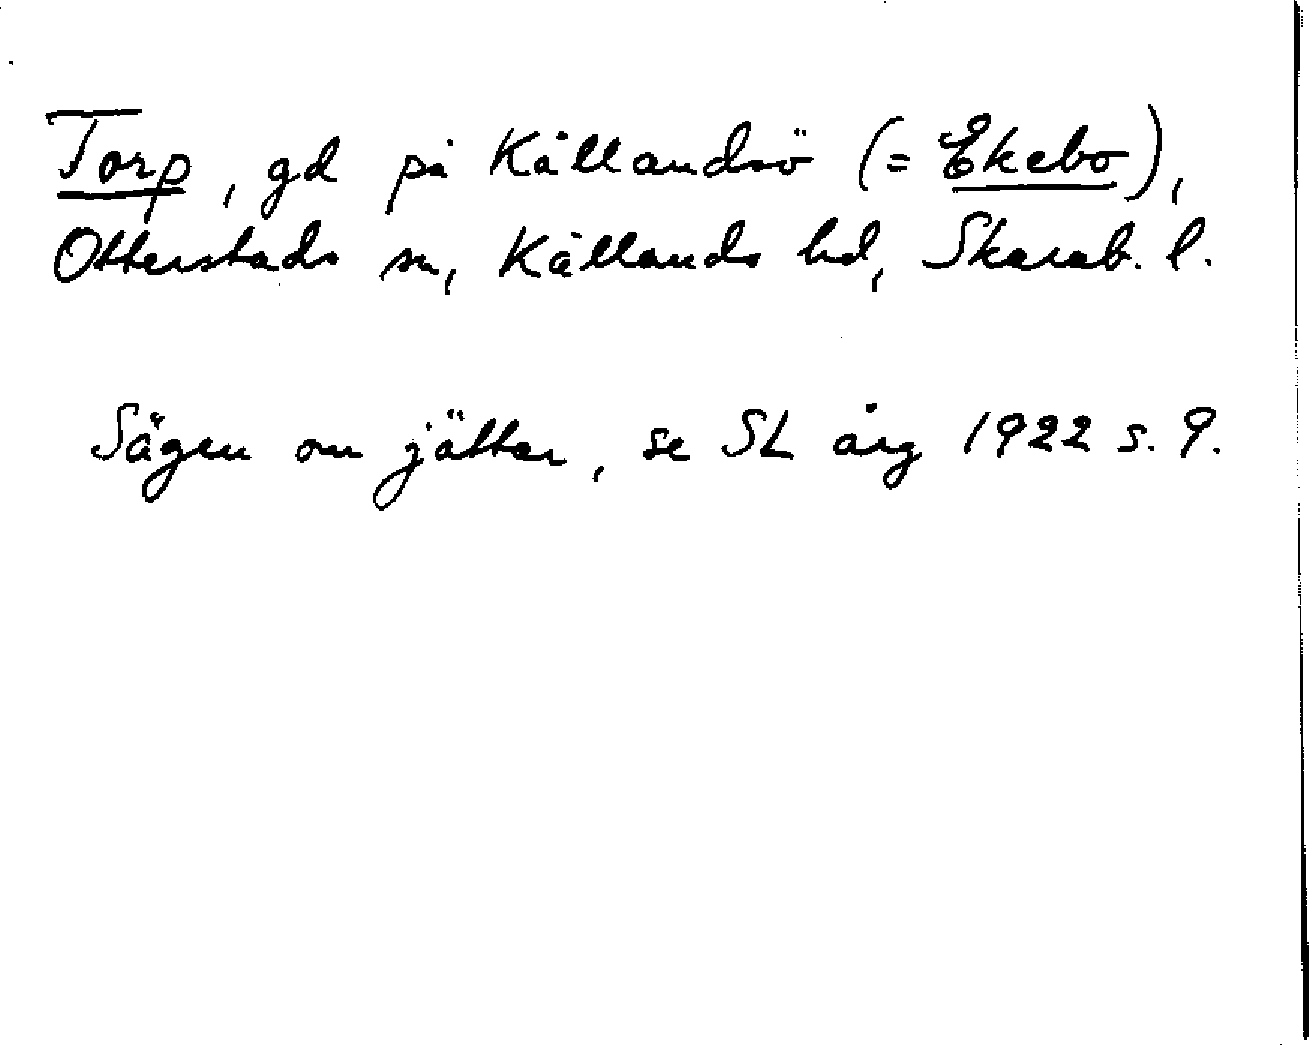 Torp, gd på Kållandsö (= Ekebo),
Otterstads sn, Kållands hd, Skarab. l.
Sägen om jättar, se SL årg 1922 s. 9.